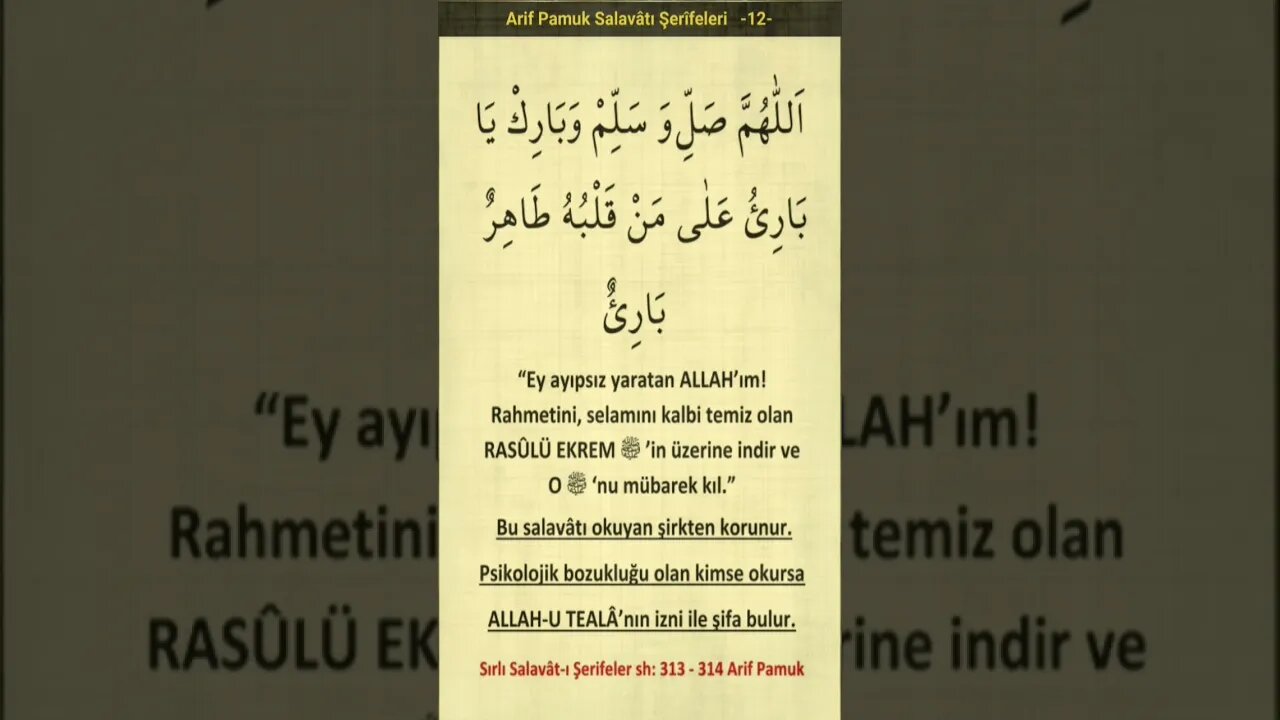 Arif Pamuk Salavâtı Şerîfeleri -12-
اَللّٰهُمَّ صَلِّ وَ سَلِّمْ وَبَارِكْ يَا
بَارِئُ عَلٰى مَنْ قَلْبُهُ طَاهِرٌ
بَارِئٌ
“Ey ayıpsız yaratan ALLAH’ım!
Rahmetini, selamını kalbi temiz olan
RASÛLÜ EKREM ﷺ ’in üzerine indir ve
O ﷺ ‘nu mübarek kıl.”
Bu salavâtı okuyan şirkten korunur.
Psikolojik bozukluğu olan kimse okursa
ALLAH-U TEALÂ’nın izni ile şifa bulur.
Sırlı Salavât-ı Şerifeler sh: 313 - 314 Arif Pamuk